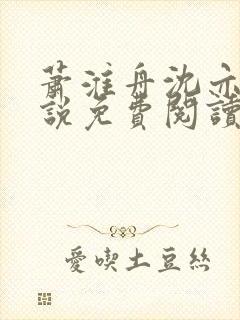 蕭淮舟沈亦
說免費閱讀
愛喫土豆絲